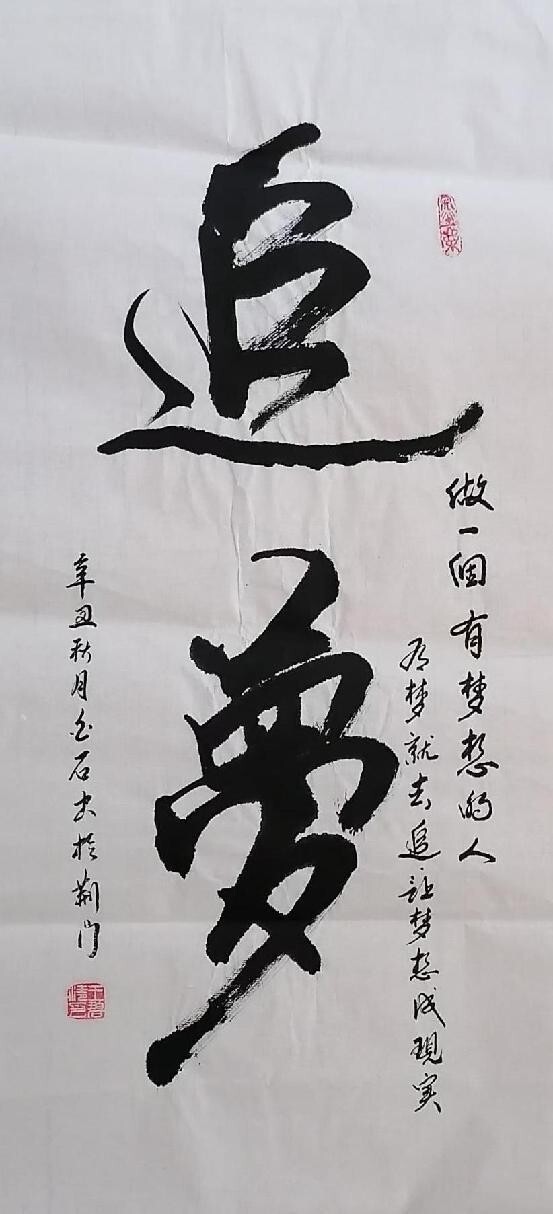 追夢
做一個有梦想的人
有梦就去追让梦想成现实
辛丑秋月白石书於荆门